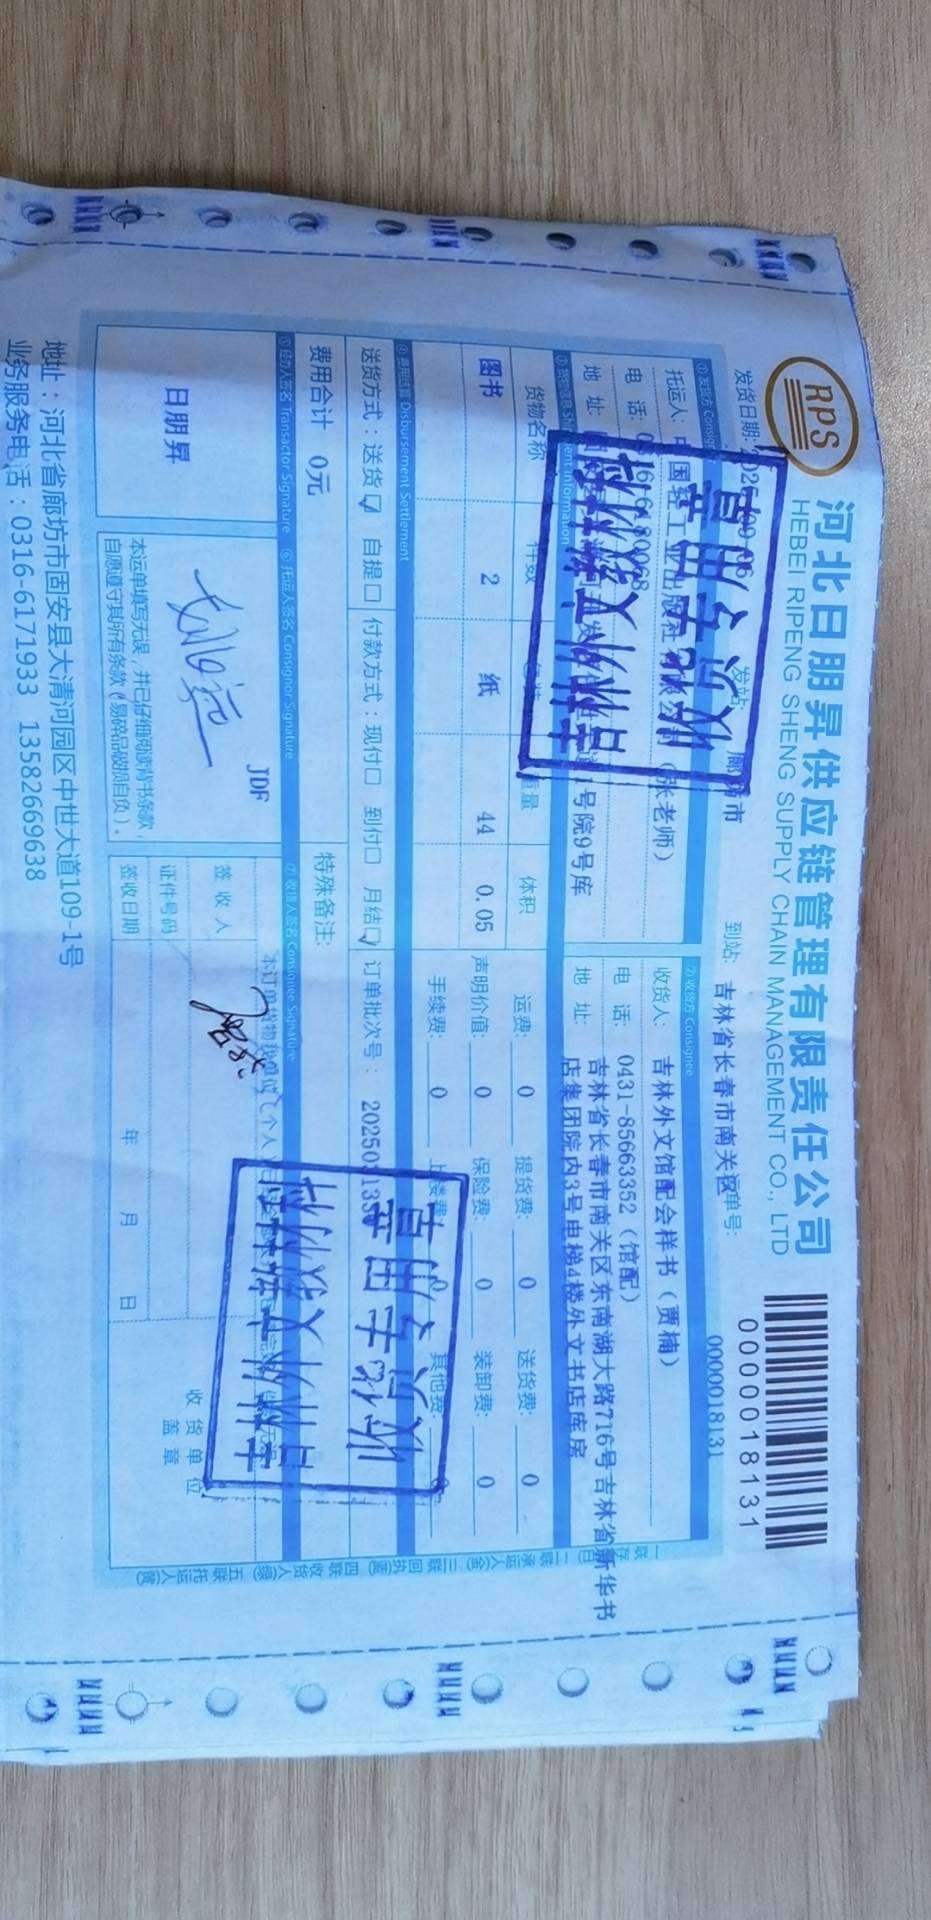 RPS
河北日朋昇供应链管理有限责任公司
HEBEI RIPENG SHENG SUPPLY CHAIN MANAGEMENT CO., LTD
0000018131
发货日期: 发站: 到站: 吉林省长春市南关区 运单号: 0000018131
①发货方 Consignor
托运人: 中国轻工业出版社有限公司（张老师）
电 话:
地 址: 1号院9号库
②收货方 Consignee
收货人: 吉林外文馆配会样书（贾楠）
电 话: 0431-85663352（馆配）
地 址: 吉林省长春市南关区东南湖大路716号吉林省新华书
店集团院内3号电梯4楼外文书店库房
③货物信息 Shipment Information
货物名称 件数 包装 重量 体积
图书 2 纸 44 0.05
运费: 0 提货费: 0 送货费: 0
声明价值: 0 保险费: 0 装卸费: 0
手续费: 0 上楼费: 0 其他费: 0
④费用结算 Disbursement Settlement
送货方式：送货☑ 自提□ 付款方式：现付□ 到付□ 月结☑ 订单批次号：
费用合计 0元 特殊备注:
⑤经办人签名 Transactor Signature
⑥托运人签名 Consignor Signature
⑦收货人签名 Consignee Signature
日朋昇
JDF
本运单填写无误，并已仔细阅读背书条款
自愿遵守其所有条款（易碎品破损自负）。
签收人
证件号码
签收日期 年 月 日
收货单位
盖章
一联存根(白) 二联承运人(金) 三联回执(蓝) 四联收货人(绿) 五联托运人(黄)
地址：河北省廊坊市固安县大清河园区中世大道109-1号
业务服务电话：0316-6171933 13582669638